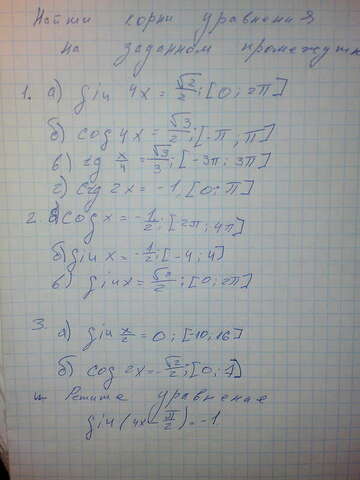 Найти корни уравнения
на заданном промежутк
1. а) sin 4x = √2/2; [0; 2π]
б) cos 4x = √3/2; [-π, π]
в) tg x/4 = √3/3; [-3π; 3π]
г) ctg 2x = -1, [0; π]
2. а) cos x = -1/2; [2π; 4π]
б) sin x = -1/2; [-4; 4]
в) sin x = √2/2; [0; 2π]
3.
а) sin x/2 = 0; [-10, 16]
б) cos 2x = -√2/2; [0; 4]
4. Решите уравнение
sin(4x - π/2) = -1